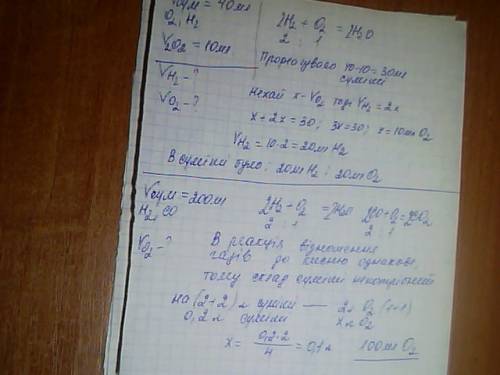 Vсум = 40мл
O₂, H₂
VзO₂ = 10мл
VH₂ - ?
VO₂ - ?
2H₂ + O₂ = 2H₂O
2 : 1
Прореагувало 40-10=30мл
суміші
Нехай x - VO₂, тоді VH₂ = 2x
x + 2x = 30; 3x = 30; x = 10мл O₂
VH₂ = 10·2 = 20мл H₂
В суміші було: 20мл H₂; 20мл O₂
Vсум = 200мл
H₂, CO
VO₂ - ?
2H₂ + O₂ = 2H₂O 2CO + O₂ = 2CO₂
2 : 1 2 : 1
В реакція відношення
газів до кисню однакові,
тому склад суміші
на (2+2) л суміші — 2л O₂ (1+1)
0,2 л суміші x л O₂
x = 0,2·2 / 4 = 0,1 л 100мл O₂